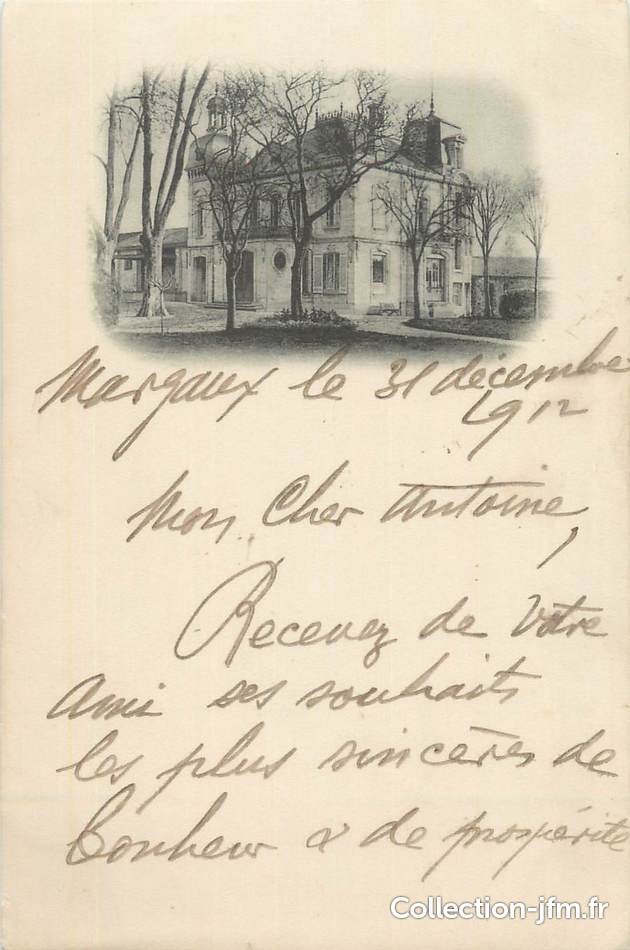 Margaux le 31 décembre
1912
Mon Cher Antoine,
Recevez de Votre
Ami ses souhaits
les plus sincères de
bonheur & de prospérité
Collection-jfm.fr